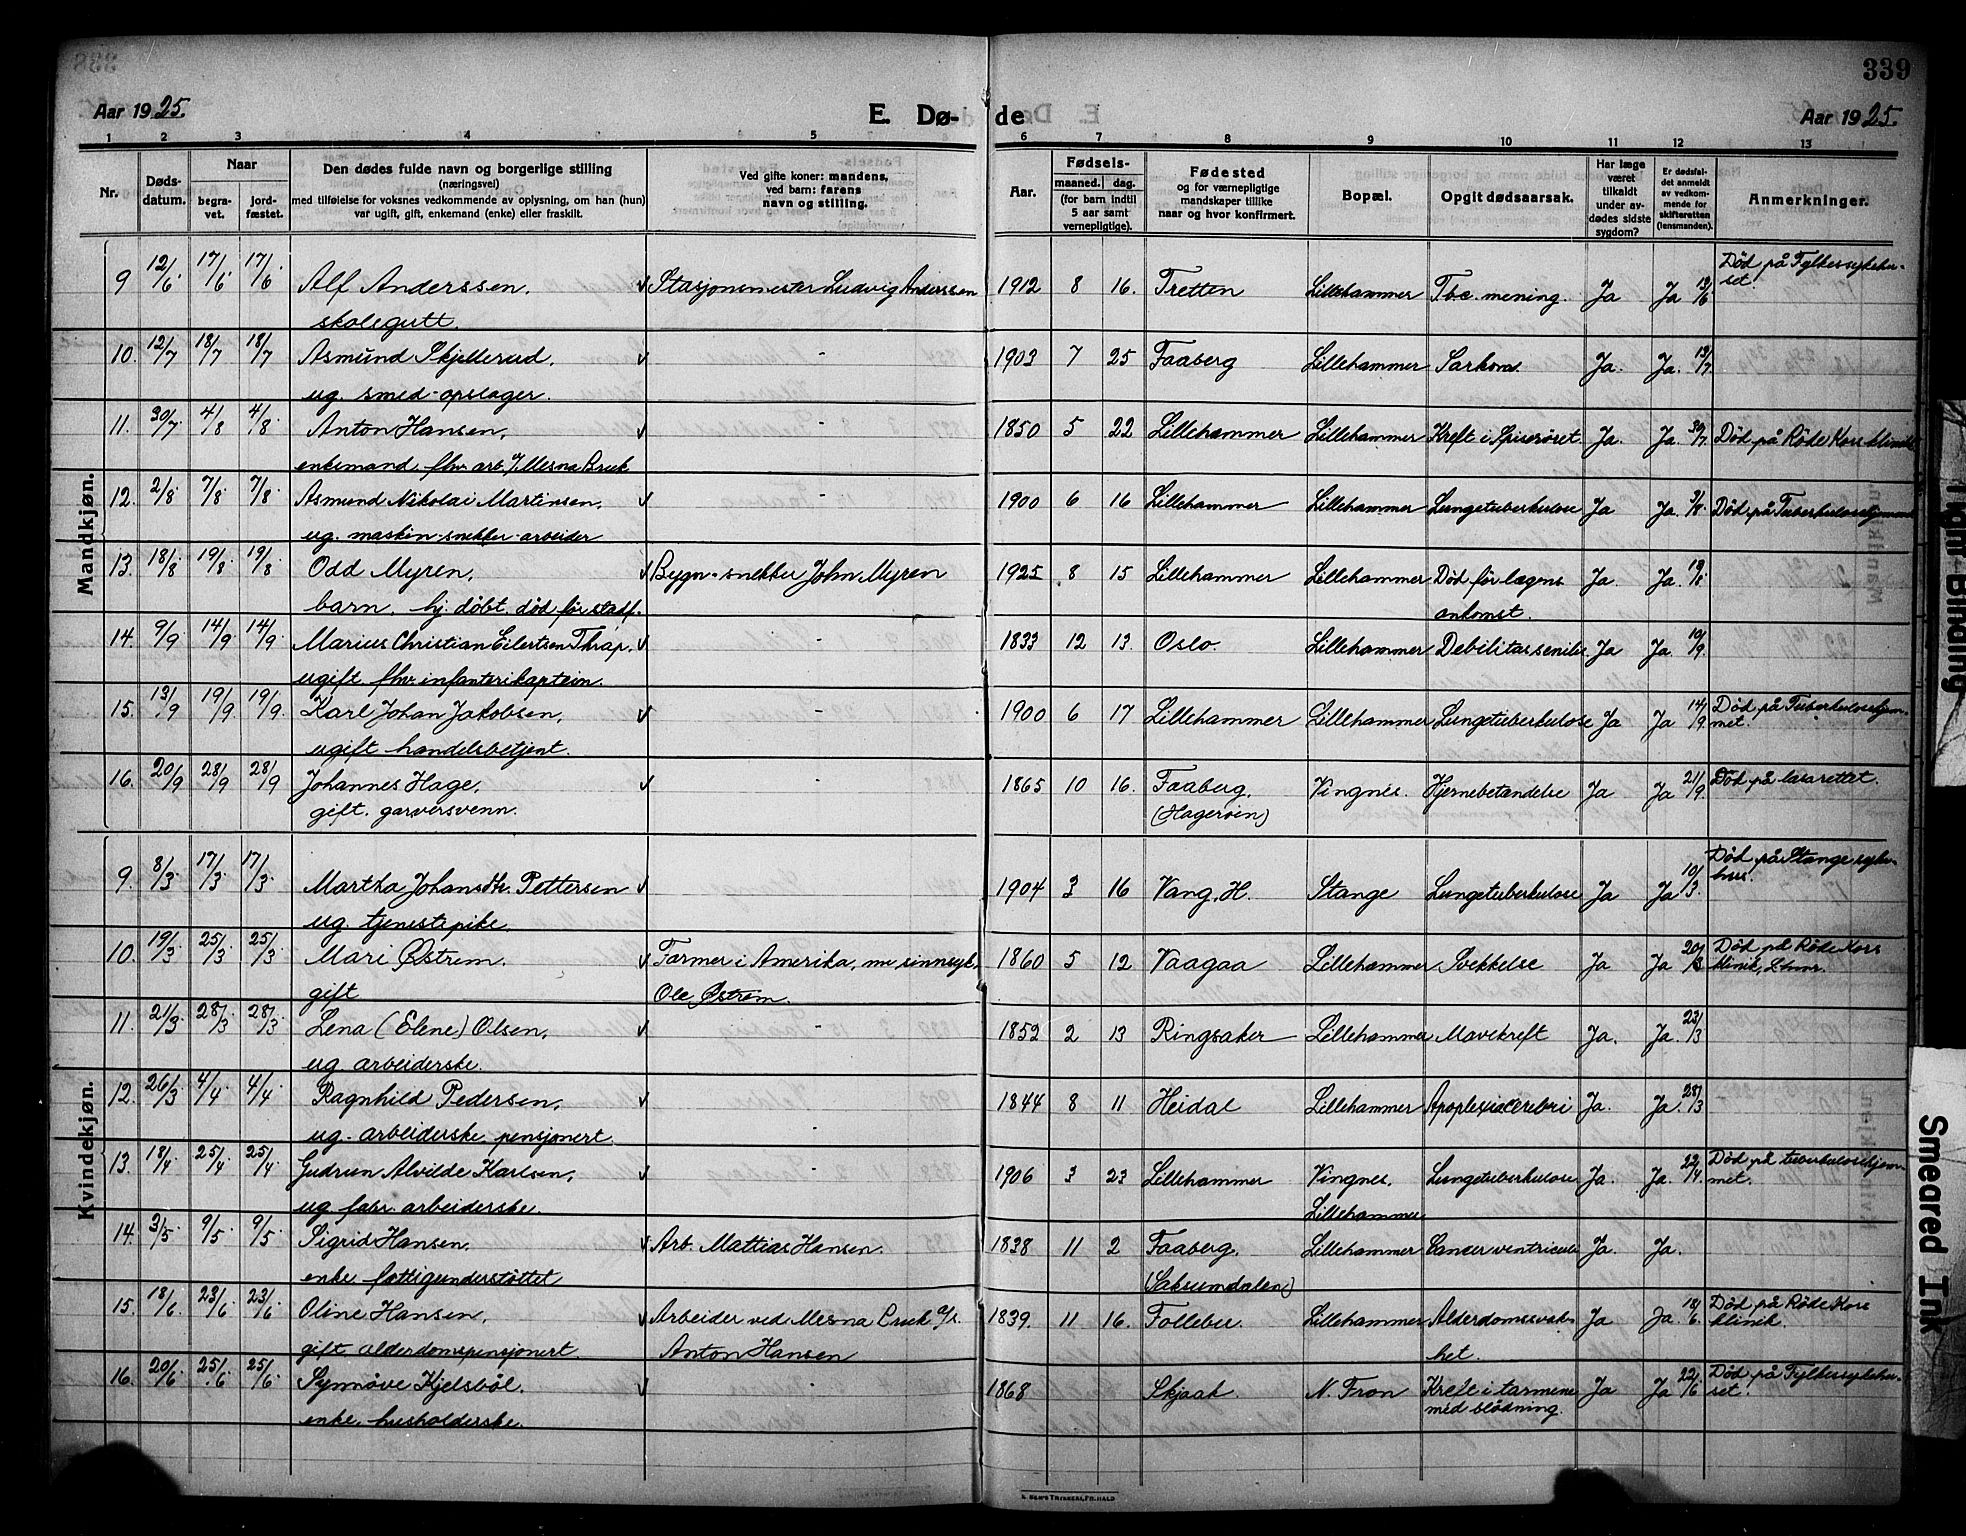 339
Aar 1925.
E. Dø-
de
Aar 1925.
1 2 3 4 5 6 7 8 9 10 11 12 13
Nr.
Døds-
datum.
Naar
begra-
vet.
jord-
fæstet.
Den dødes fulde navn og borgerlige stilling
(næringsvei)
med tilføielse for voksnes vedkommende av oplysning, om han (hun)
var ugift, gift, enkemand (enke) eller fraskilt.
Ved gifte koner: mandens,
ved barn: farens
navn og stilling.
Aar.
Fødsels-
maaned. dag.
(for barn indtil
5 aar samt
vernepligtige).
Fødested
og for værnepligtige
mandskaper tillike
naar og hvor konfirmert.
Bopæl.
Opgit dødsaarsak.
Har læge
været
tilkaldt
under av-
dødes sidste
sygdom?
Er dødsfal-
det anmeldt
av vedkom-
mende for
skifteretten
(lensmanden).
Anmerkninger.
Mandkjøn.
9 12/6 17/6 17/6 Alf Anderssen, Stasjonsmester Ludvig Anderssen 1912 8 16. Tretten Lillehammer Tbc. mening. Ja Ja 13/6 Død på Fylkessykehu-
set.
skolegutt.
10. 12/7 18/7 18/7 Asmund Skjellerud, - 1903 7 25 Faaberg Lillehammer Sarkom. Ja. Ja. 13/7
ug. smed-opslager.
11. 30/7 4/8 4/8 Anton Hansen, - 1850 5 22 Lillehammer Lillehammer Kreft i Spiserøret Ja. Ja. 30/7. Død på Røde Kors klinik
enkemand, fhv. arb. v/ Mesna Bruk
12. 2/8 7/8 7/8 Asmund Nikolai Martinsen, - 1900 6 16 Lillehammer Lillehammer Lungetuberkulose Ja Ja. 3/8. Død på Tuberkulosehjemmet
ug. maskin-snekker-arbeider
13. 18/8 19/8 19/8 Odd Myren, Bygn.-snekker John Myren 1925 8 15 Lillehammer Lillehammer Død før lægens Ja. Ja. 19/8.
barn, hj. døbt, død før stadf. ankomst.
14. 9/9 14/9 14/9 Marius Christian Eilertsen Thrap, - 1833 12 13. Oslo. Lillehammer Debilitas senilis. Ja Ja 10/9.
ugift. fhv. infanterikaptein.
15. 13/9 19/9 19/9. Karl Johan Jakobsen, - 1900 6 17 Lillehammer Lillehammer Lungetuberkulose Ja Ja 14/9 Død på Tuberkulosehjem-
met.
ugift handelsbetjent.
16. 20/9 28/9 28/9 Johannes Hage, - 1865 10 16. Faaberg, Vingnes. Hjernebetændelse Ja Ja 21/9. Død på lasarettet.
gift. garversvenn. (Hagerøen)
Kvindekjøn.
9. 8/3 17/3 17/3 Martha Johansdtr. Pettersen 1904 3 16 Vang, H. Stange Lungetuberkulose Ja Ja 10/3. Død på Stange syke-
hus.
ug. tjenestepike.
10. 19/3 25/3 25/3 Mari Østrem. Farmer i Amerika, nu sinnsyk, 1860 5 12 Vaagaa Lillehammer Svekkelse Ja Ja 20/3 Død på Røde Kors
klinik, Lhmr.
gift Ole Østrem.
11. 21/3 28/3 28/3 Lena (Elene) Olsen, - 1852 2 13 Ringsaker Lillehammer Mavekreft Ja. Ja. 23/3
ug arbeiderske.
12. 26/3 4/4 4/4 Ragnhild Pedersen, - 1844 8 11 Heidal Lillehammer Apoplexia cerebri Ja. Ja. 28/3
ug. arbeiderske, pensjonert
13. 18/4 25/4 25/4 Gudrun Alvilde Karlsen, - 1906 3 23 Lillehammer Vingnes, Lungetuberkulose Ja. Ja. 22/4. Død på tuberkulosehjem-
met.
ug fabr. arbeiderske. Lillehammer
14. 3/5 9/5 9/5 Sigrid Hansen, Arb. Mattias Hansen. 1838 11 2 Faaberg, Lillehammer Cancer ventriculi Ja. Ja.
enke, fattigunderstøttet (Saksumdalen)
15. 18/6 23/6 23/6 Oline Hansen, Arbeider ved Mesna Bruk A/S. 1839. 11 16. Follebu. Lillehammer Alderdomssvak- Ja Ja. 18/6. Død på Røde Kors
klinik.
gift, alderdomspensjonert. Anton Hansen het.
16. 20/6 25/6 25/6 Synnøve Kjelsbøl. - 1868 Skjaak N. Fron Kreft i tarmene Ja Ja 22/6 Død på Fylkessykehu-
set.
enke, husholderske. med blødning.
Tight Binding
Smeared Ink